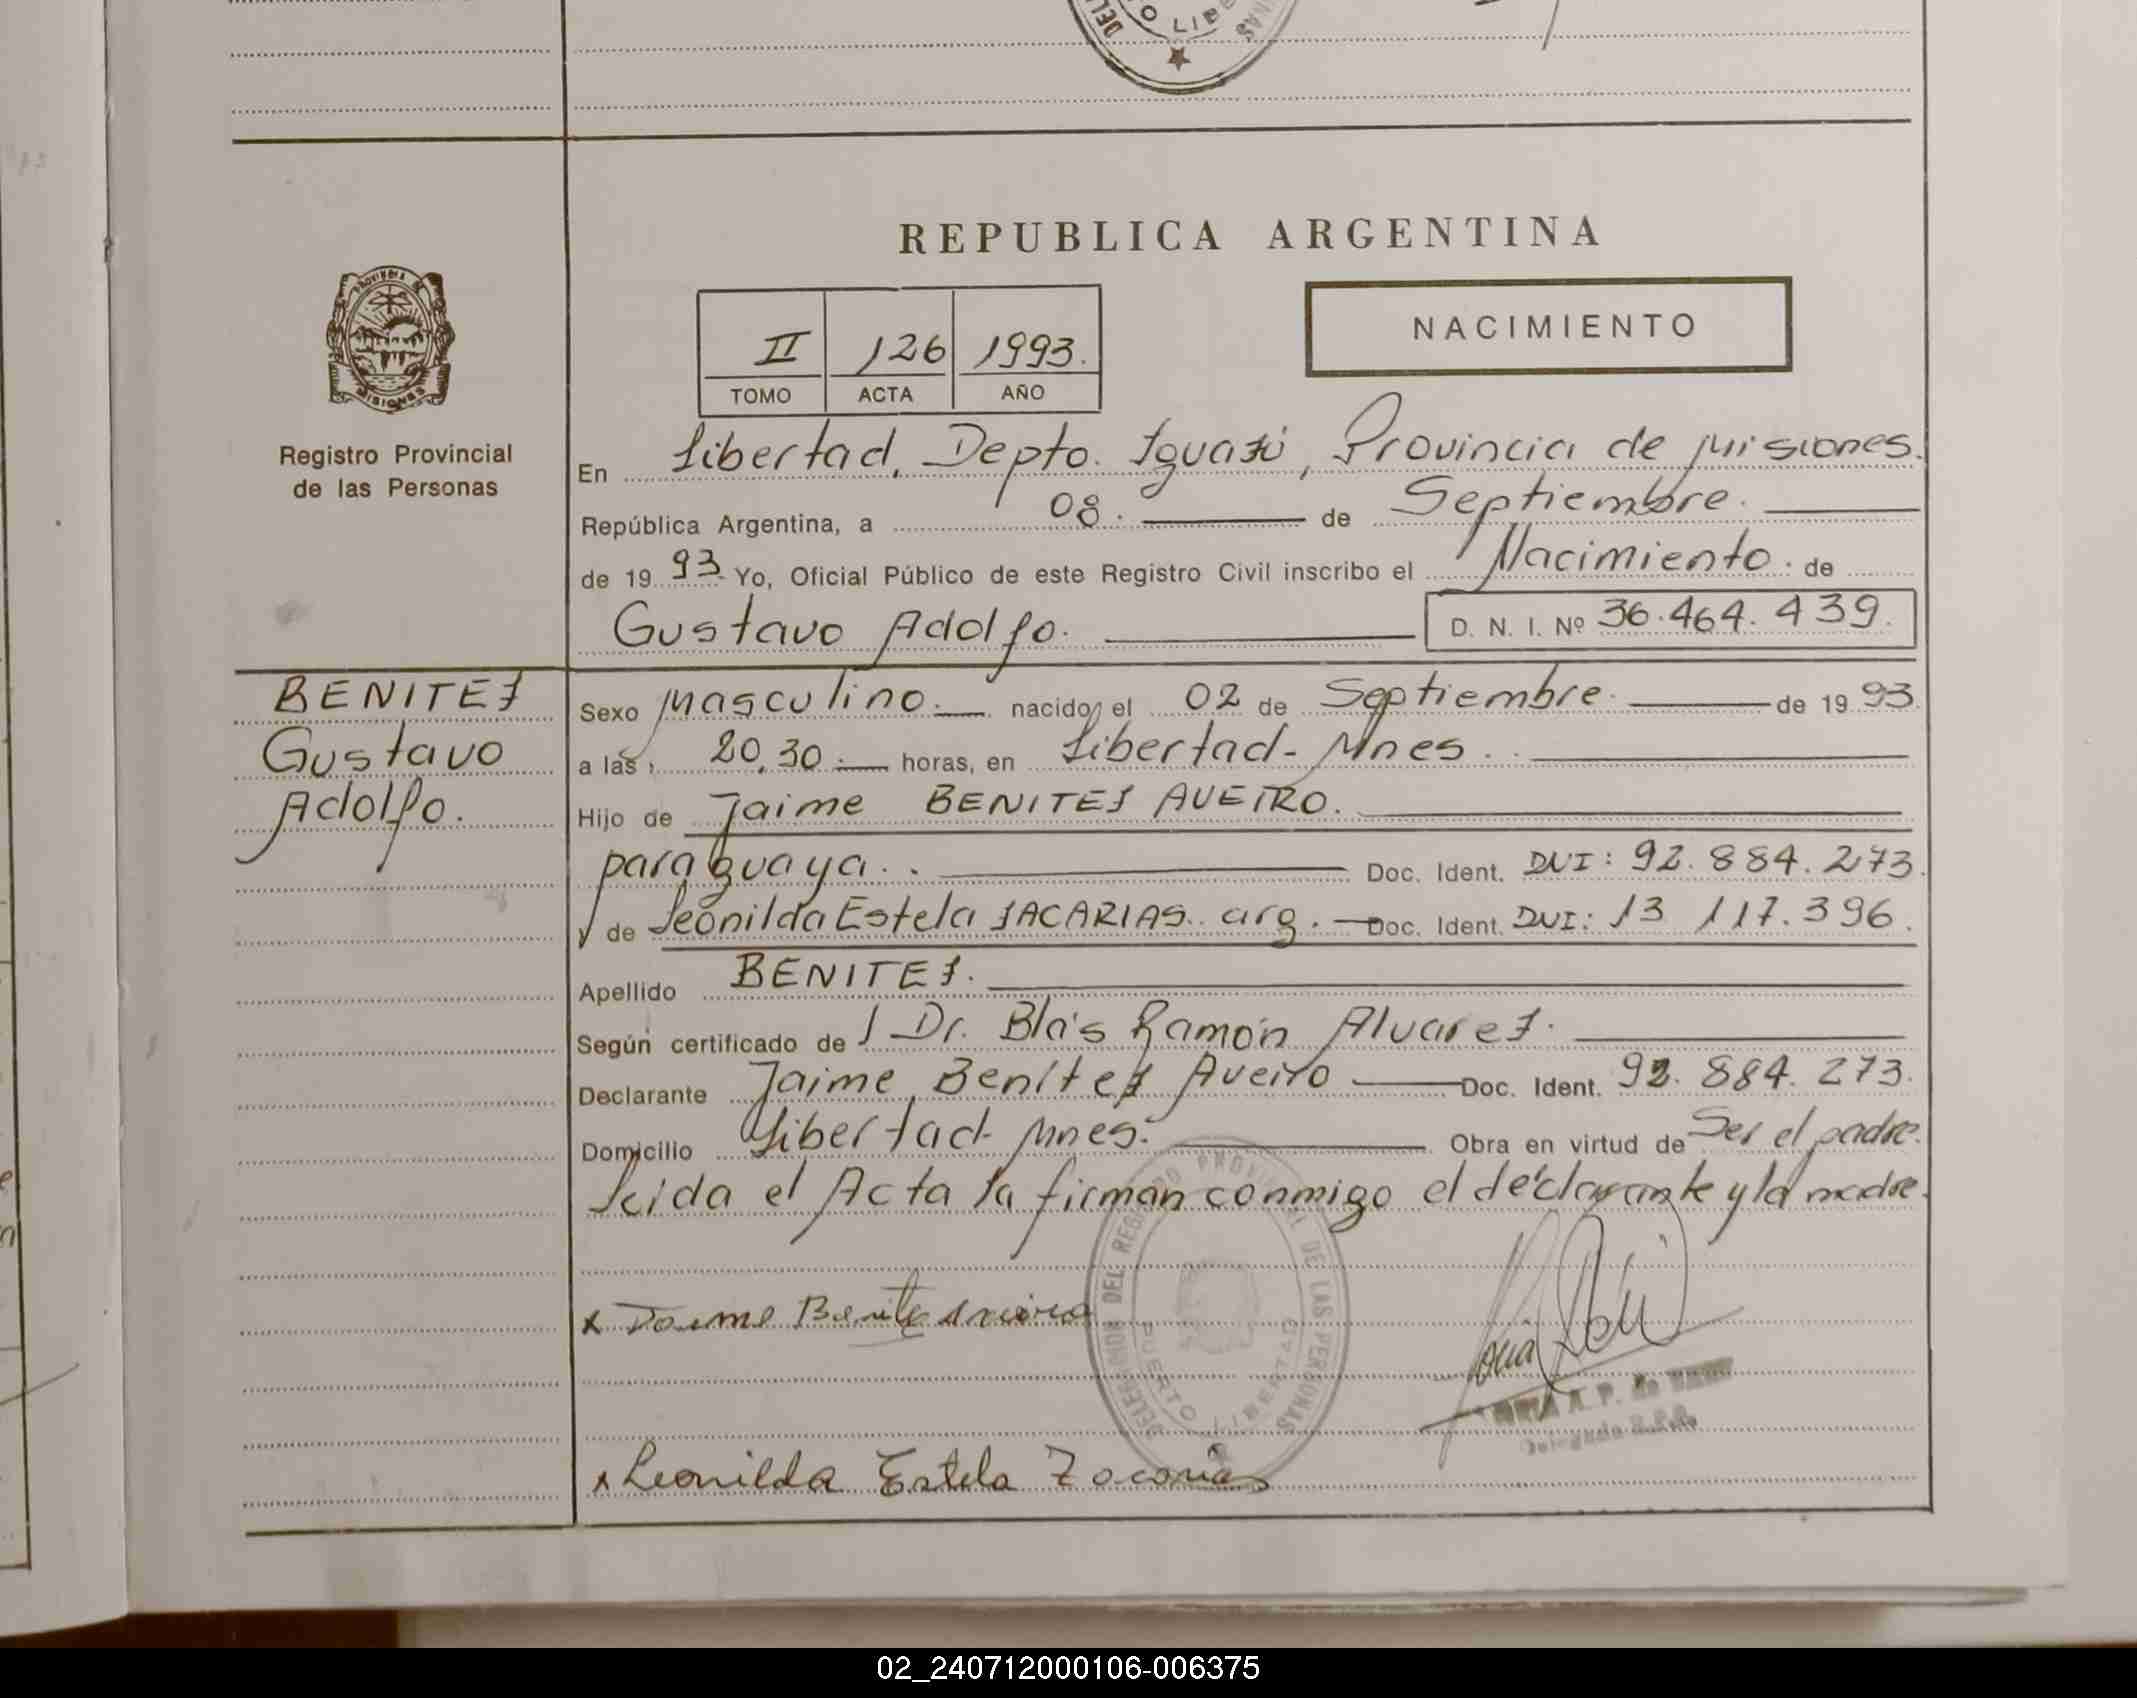 REPUBLICA ARGENTINA
PROVINCIA DE
MISIONES
Registro Provincial
de las Personas
II 126 1993.
TOMO ACTA AÑO
NACIMIENTO
En Libertad, Depto. Iguazú, Provincia de Misiones.
República Argentina, a 08. de Septiembre.
de 1993 Yo, Oficial Público de este Registro Civil inscribo el Nacimiento. de
Gustavo Adolfo. D. N. I. Nº 36.464.439.
BENITEZ
Gustavo
Adolfo.
Sexo Masculino. nacido el 02 de Septiembre. de 1993.
a las 20,30. horas, en Libertad-Mnes.
Hijo de Jaime BENITEZ AVEIRO.
paraguaya. Doc. Ident. DNI: 92.884.273.
y de Leonilda Estela ZACARIAS. arg. Doc. Ident. DNI: 13 117.396.
Apellido BENITEZ.
Según certificado de Dr. Blás Ramón Alvarez.
Declarante Jaime Benítez Aveiro Doc. Ident. 92.884.273.
Domicilio Libertad-Mnes. Obra en virtud de Ser el padre.
Leida el Acta la firman conmigo el declarante y la madre.
DELEGACION DEL REGISTRO PROVINCIAL DE LAS PERSONAS
PUERTO LIBERTAD
x Jaime Benite Aveiro
A. P. de
x Leonilda Estela Zacarias
02_240712000106-006375